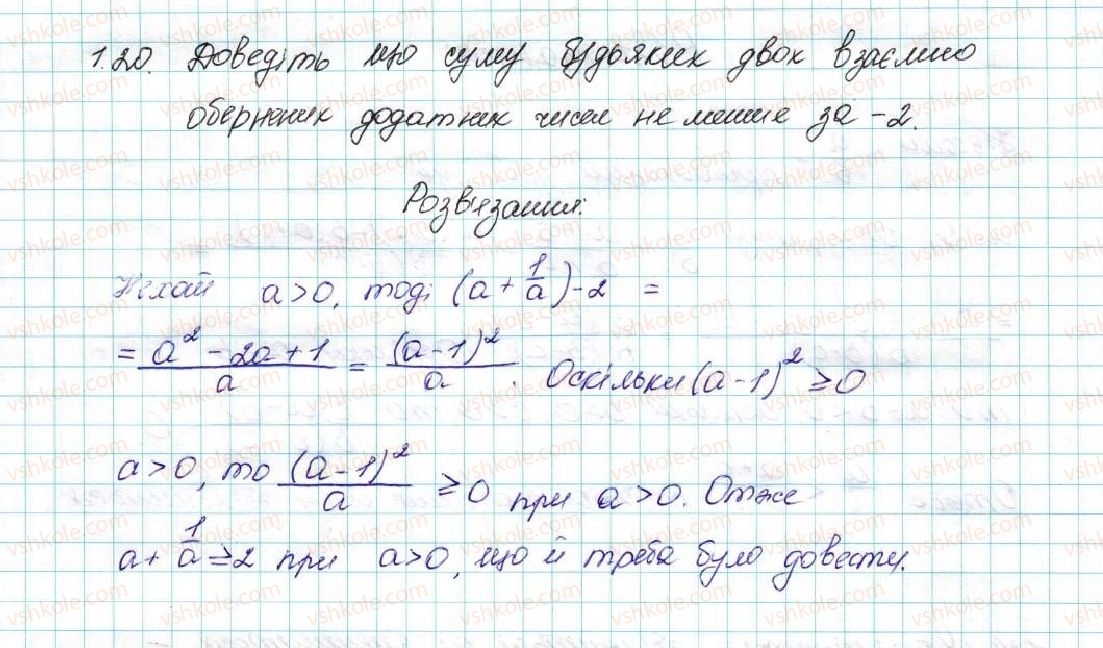 1.20. Доведіть що суму будьяких двох взаємно
обернених додатних чисел не менше за -2.
Розв'язання:
Нехай a > 0, тоді (a + 1/a) - 2 =
= (a² - 2a + 1)/a = (a - 1)²/a . Оскільки (a - 1)² ≥ 0
a > 0, то (a - 1)²/a ≥ 0 при a > 0. Отже
a + 1/a ≥ 2 при a > 0, що й треба було довести.